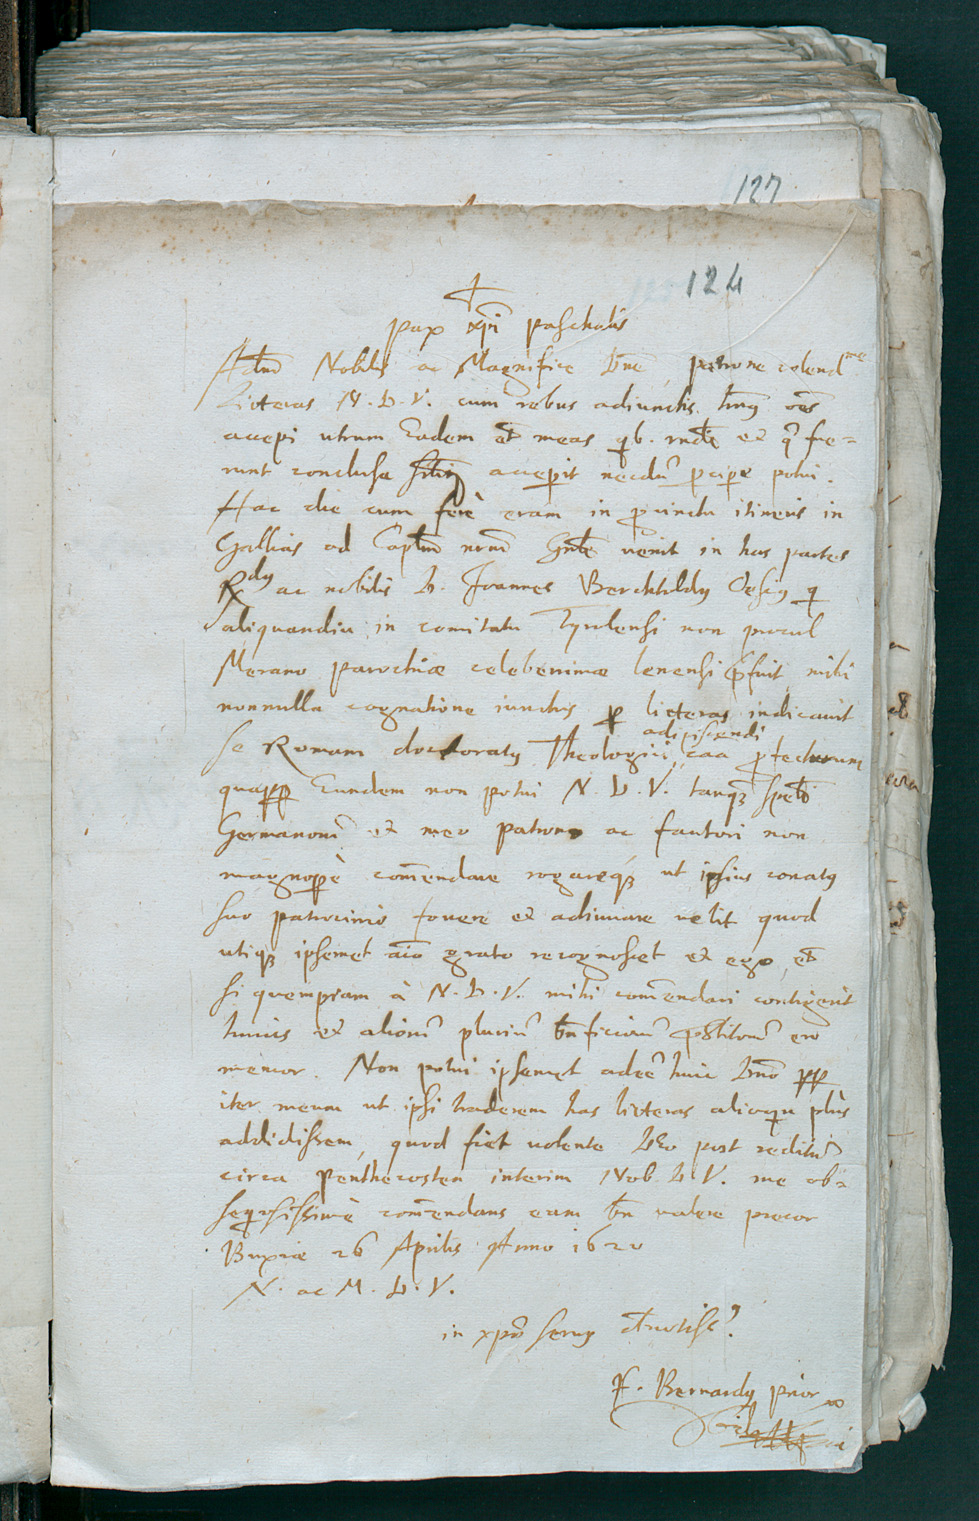 127
124
pax xpi paschalis
Adm Nobilis ac Magnifice Dne, patrone colendme
Litteras N. D. V. cum rebus adiunctis
accepi utrum Eadem et meas q fue-
runt conclusa accepit necdu pcipe potui.
Hac die cum ferè eram in procinctu itineris in
Gallias ad Captm nrm Gnle venit in has partes
Rdus ac nobilis D. Joannes Berchtoldus q
aliquandiu in comitatu Tyrolensi non procul
Merano parochiæ celeberrimæ lenensi pfuit, mihi
nonnulla cognatione iunctus p litteras indicauit
adipiscendi
se Romam doctoratus Theologici caa profecturum
quapp Eundem non potui N. D. V. tanqz
Germanoru et meo patrono ac fautori non
magnopè comendare rogareqz ut ipsius conatus
suo patrocinio fouere et adiuuare uelit quod
utiqz ipsemet aio grato recognoscet et ego, et
si quempiam à N. D. V. mihi comendari contigerit
huius et alioru pluriu bnficioru pstitoru ero
memor. Non potui ipsemet adee huic Dno pp
iter meum ut ipsi traderem has litteras alioqui plus
addidissem, quod fiet uolente Deo post reditu
circa penthecosten interim Nob. D. V. me ob-
seqsissimè comendans eam bn ualere precor
Buxiæ 26 Aprilis Anno 1620
N. ac M. D. V.
in xpo seruus
F. Bernardus prior